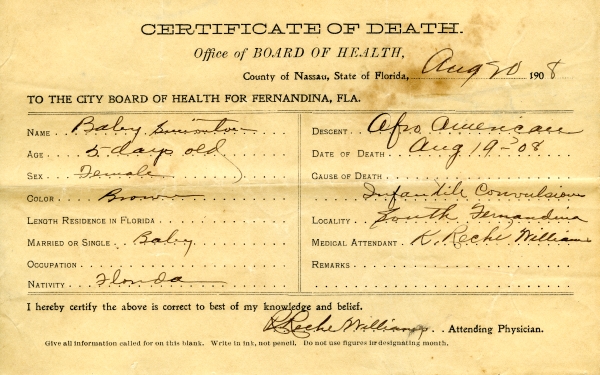 CERTIFICATE OF DEATH.
Office of BOARD OF HEALTH,
County of Nassau, State of Florida, Aug 20 1908
TO THE CITY BOARD OF HEALTH FOR FERNANDINA, FLA.
NAME Baby
AGE 5 days old
SEX Female
COLOR Brown
LENGTH RESIDENCE IN FLORIDA
MARRIED OR SINGLE Baby
OCCUPATION
NATIVITY Florida
DESCENT Afro American
DATE OF DEATH Aug 19-08
CAUSE OF DEATH
Infantile Convulsions
LOCALITY South Fernandina
MEDICAL ATTENDANT R. Reché Williams
REMARKS
I hereby certify the above is correct to best of my knowledge and belief.
R Reché Williams Attending Physician.
Give all information called for on this blank. Write in ink, not pencil. Do not use figures in designating month.